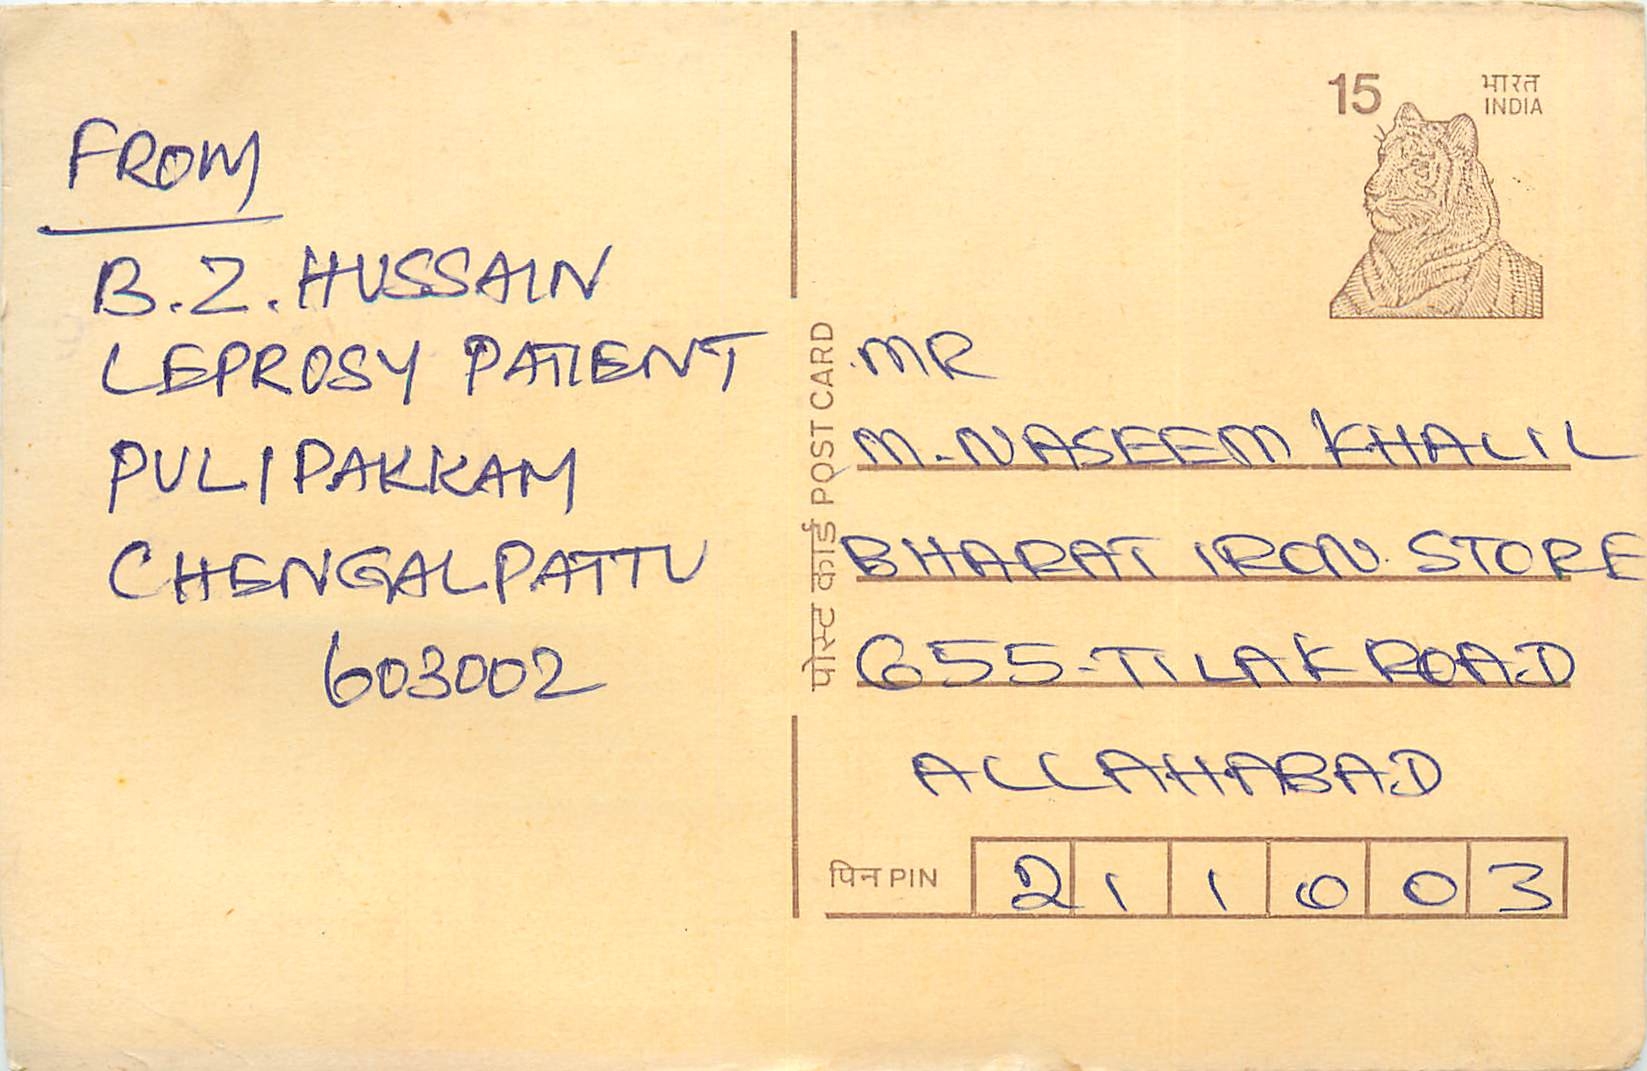 FROM
B.Z. HUSSAIN
LEPROSY PATIENT
PULIPAKKAM
CHENGALPATTU
603002
15
भारत
INDIA
पोस्ट कार्ड POST CARD
MR
M. NASEEM KHALIL
BHARAT IRON. STORE
655-TILAK ROAD
ALLAHABAD
पिन PIN 211003